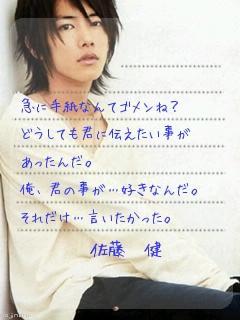 急に手紙なんてゴメンね?
どうしても君に伝えたい事が
あったんだ。
俺、君の事が…好きなんだ。
それだけ…言いたかった。
佐藤 健